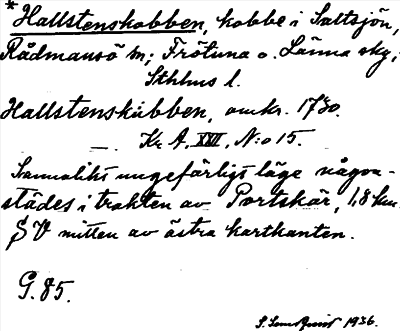 * Hallstenskobben, kobbe i Saltsjön,
Rådmansö sn; Frötuna o. Länna skg;
Sthlms l.
Hallstenskubben, omkr. 1730.
— Kr A, XXVI, N:o 15.
Sannolikt ungefärligt läge någon-
städes i trakten av Portskär, 1,8 km.
SV mitten av östra kartkanten.
G. 85.
1936.